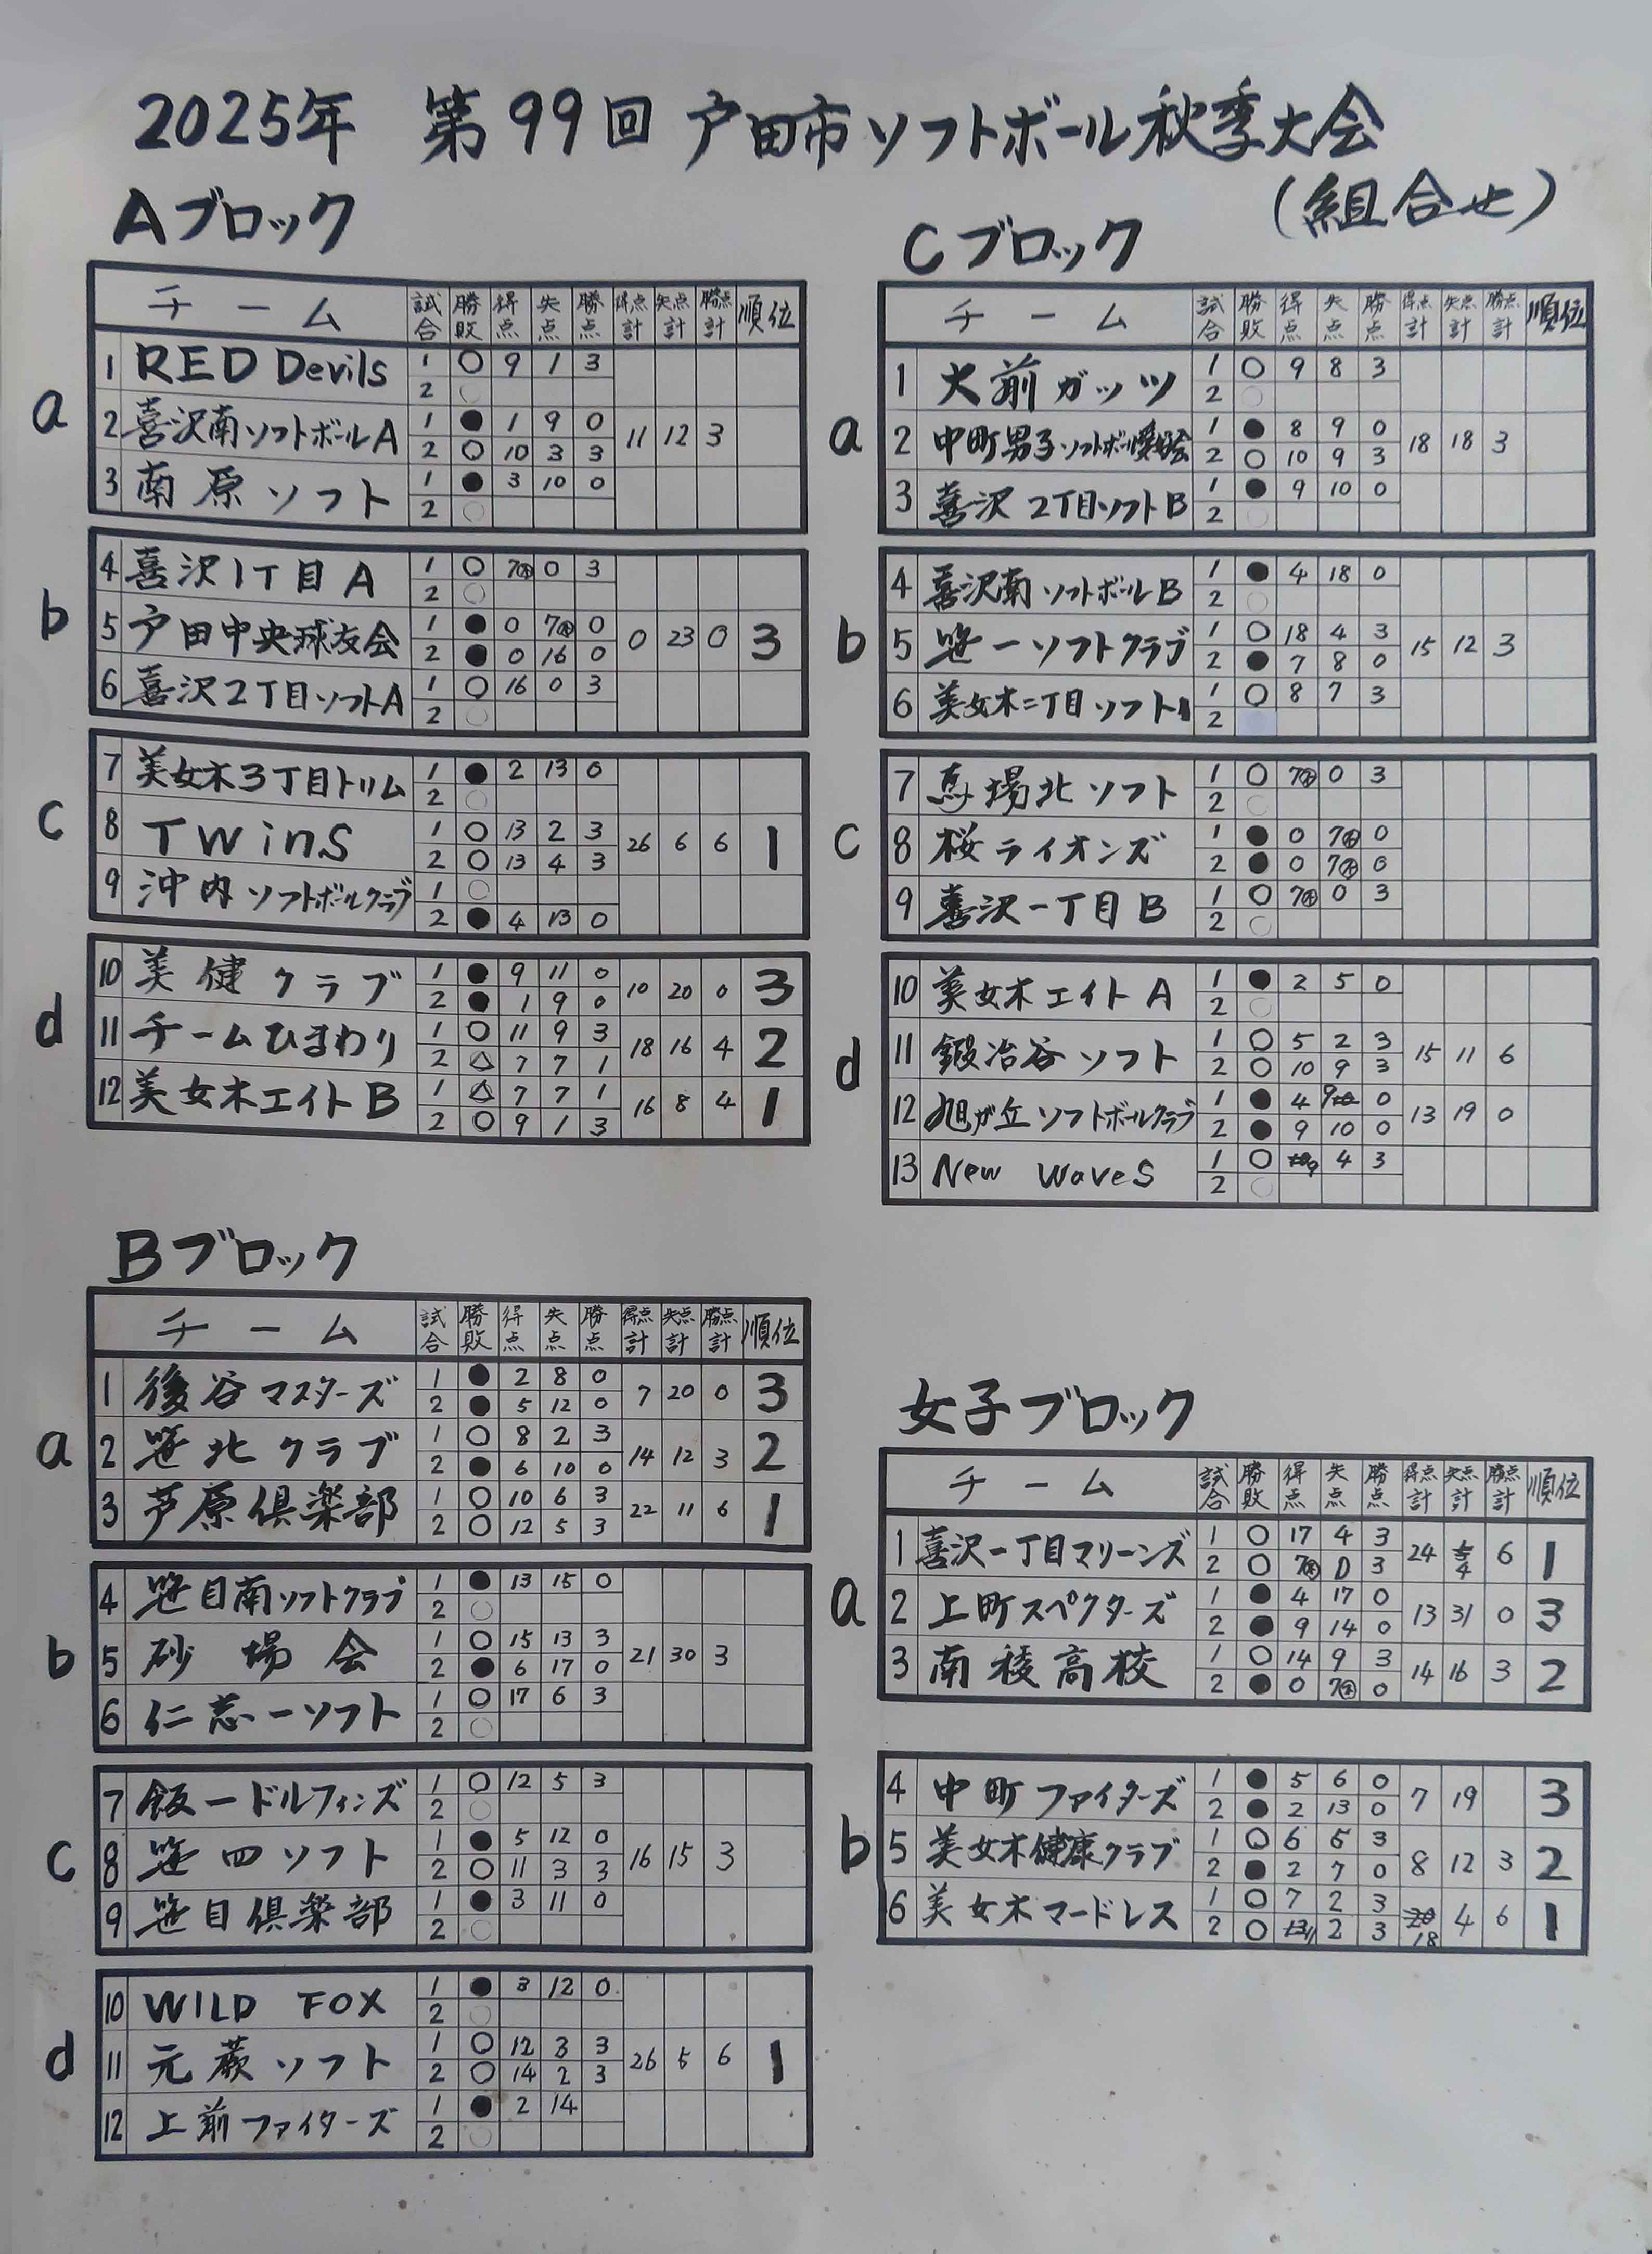 2025年 第99回 戸田市ソフトボール秋季大会
(組合せ)
Aブロック
チーム 試合 勝敗 得点 失点 勝点 得点計 失点計 勝点計 順位
a
1 RED Devils 1 ○ 9 1 3
2 ○
2 喜沢南ソフトボールA 1 ● 1 9 0 11 12 3
2 ○ 10 3 3
3 南原ソフト 1 ● 3 10 0
2 ○
b
4 喜沢1丁目A 1 ○ 7 0 3
2 ○
5 戸田中央球友会 1 ● 0 7 0 0 23 0 3
2 ● 0 16 0
6 喜沢2丁目ソフトA 1 ○ 16 0 3
2 ○
c
7 美女木3丁目トリム 1 ● 2 13 0
2 ○
8 TwinS 1 ○ 13 2 3 26 6 6 1
2 ○ 13 4 3
9 沖内ソフトボールクラブ 1 ○
2 ● 4 13 0
d
10 美健クラブ 1 ● 9 11 0 10 20 0 3
2 ● 1 9 0
11 チームひまわり 1 ○ 11 9 3 18 16 4 2
2 △ 7 7 1
12 美女木エイトB 1 △ 7 7 1 16 8 4 1
2 ○ 9 1 3
Bブロック
チーム 試合 勝敗 得点 失点 勝点 得点計 失点計 勝点計 順位
a
1 後谷マスターズ 1 ● 2 8 0 7 20 0 3
2 ● 5 12 0
2 笹北クラブ 1 ○ 8 2 3 14 12 3 2
2 ● 6 10 0
3 芦原倶楽部 1 ○ 10 6 3 22 11 6 1
2 ○ 12 5 3
b
4 笹目南ソフトクラブ 1 ● 13 15 0
2 ○
5 砂場会 1 ○ 15 13 3 21 30 3
2 ● 6 17 0
6 仁志一ソフト 1 ○ 17 6 3
2 ○
c
7 飯一ドルフィンズ 1 ○ 12 5 3
2 ○
8 笹四ソフト 1 ● 5 12 0 16 15 3
2 ○ 11 3 3
9 笹目倶楽部 1 ● 3 11 0
2 ○
d
10 WILD FOX 1 ● 3 12 0
2 ○
11 元蕨ソフト 1 ○ 12 3 3 26 5 6 1
2 ○ 14 2 3
12 上前ファイターズ 1 ● 2 14
2 ○
Cブロック
チーム 試合 勝敗 得点 失点 勝点 得点計 失点計 勝点計 順位
a
1 大前ガッツ 1 ○ 9 8 3
2 ○
2 中町男子ソフトボール愛好会 1 ● 8 9 0 18 18 3
2 ○ 10 9 3
3 喜沢2丁目ソフトB 1 ● 9 10 0
2 ○
b
4 喜沢南ソフトボールB 1 ● 4 18 0
2 ○
5 笹一ソフトクラブ 1 ○ 18 4 3 15 12 3
2 ● 7 8 0
6 美女木二丁目ソフト 1 ○ 8 7 3
2
c
7 馬場北ソフト 1 ○ 7 0 3
2 ○
8 桜ライオンズ 1 ● 0 7 0
2 ● 0 7 0
9 喜沢一丁目B 1 ○ 7 0 3
2 ○
d
10 美女木エイトA 1 ● 2 5 0
2 ○
11 鍛冶谷ソフト 1 ○ 5 2 3 15 11 6
2 ○ 10 9 3
12 旭が丘ソフトボールクラブ 1 ● 4 9 0 13 19 0
2 ● 9 10 0
13 New WaveS 1 ○ 9 4 3
2 ○
女子ブロック
チーム 試合 勝敗 得点 失点 勝点 得点計 失点計 勝点計 順位
a
1 喜沢一丁目マリーンズ 1 ○ 17 4 3 24 4 6 1
2 ○ 7 0 3
2 上町スペクターズ 1 ● 4 17 0 13 31 0 3
2 ● 9 14 0
3 南稜高校 1 ○ 14 9 3 14 16 3 2
2 ● 0 7 0
b
4 中町ファイターズ 1 ● 5 6 0 7 19 3
2 ● 2 13 0
5 美女木健康クラブ 1 ○ 6 5 3 8 12 3 2
2 ● 2 7 0
6 美女木マードレス 1 ○ 7 2 3 18 4 6 1
2 ○ 11 2 3